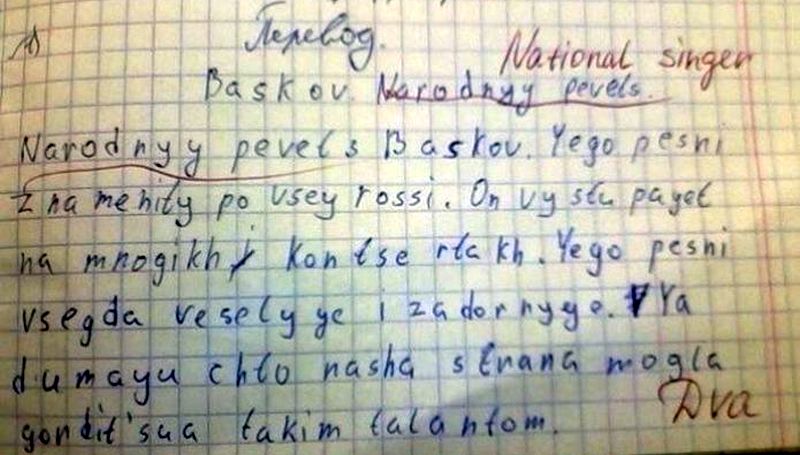 1) Перевод.
National singer
Baskov. Narodnyy pevels.
Narodnyy pevels Baskov. Yego pesni
znamenity po vsey rossi. On vystupayet
na mnogikh kontsertakh. Yego pesni
vsegda veselyye i zadornyye. Ya
dumayu chto nasha strana mogla
gordit'sua takim talantom.
Dva